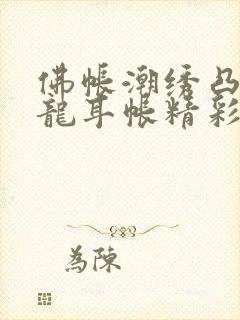 佛帐潮绣凸
龍耳帐精彩
為陳